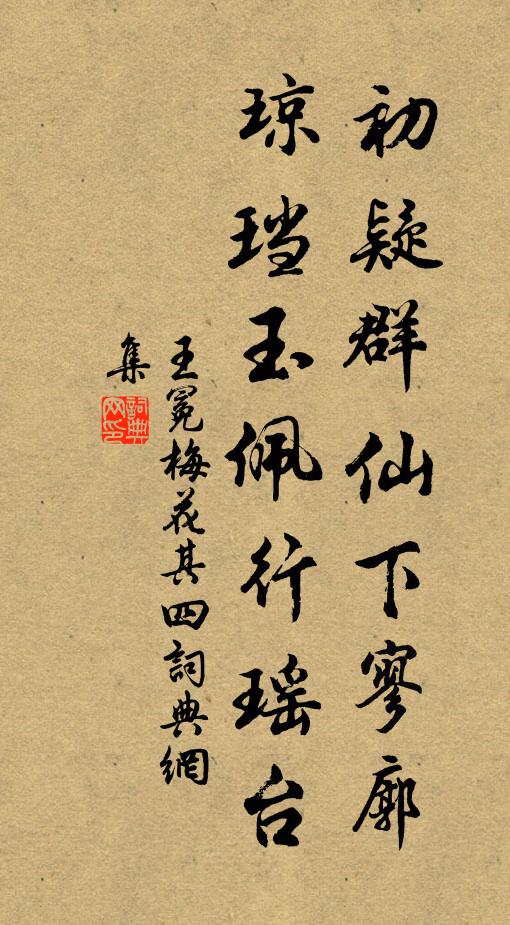 初疑群仙下寥廓
琼珰玉佩行瑶台
王冕梅花其四詞典網
集
詞典
网印